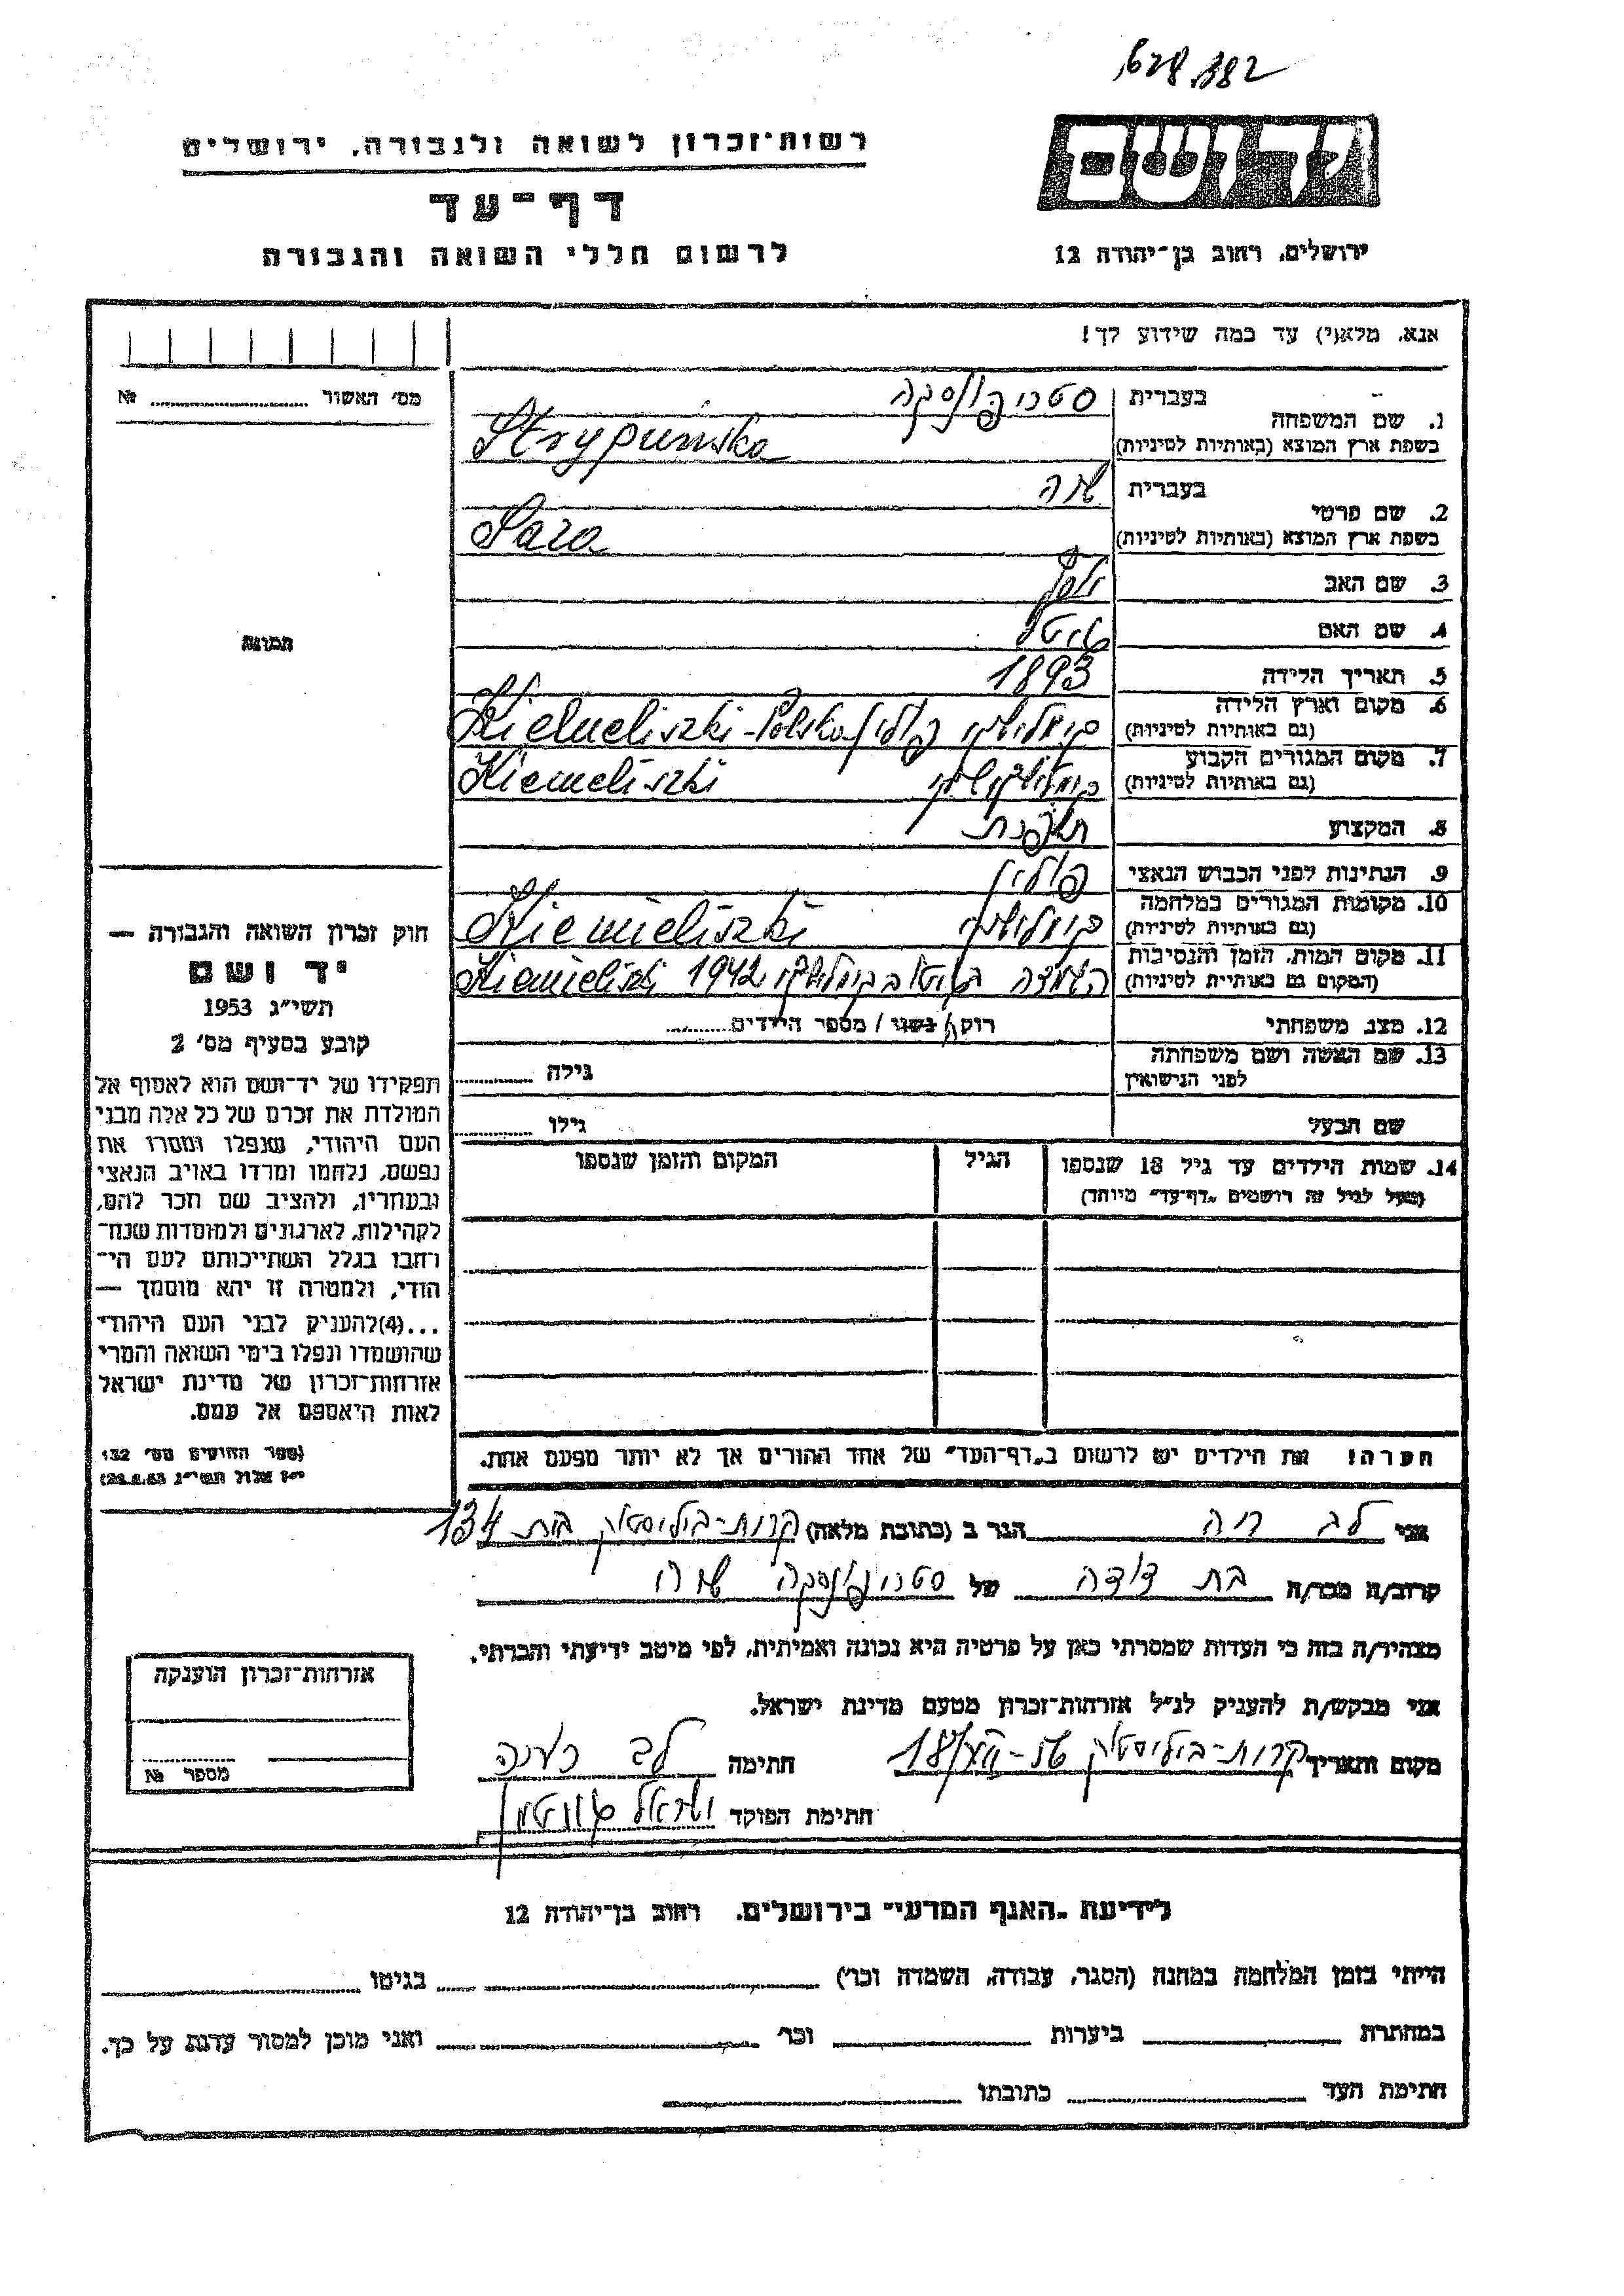 628.382
רשות־זכרון לשואה ולגבורה, ירושלים
יד ושם
דף־עד
לרשום חללי השואה והגבורה
ירושלים, רחוב בן־יהודה 12
אנא, מלא(י) עד כמה שידוע לך!
מס׳ האשור № 
1. שם המשפחה
בעברית
Strypunska
בשפת ארץ המוצא (באותיות לטיניות)
2. שם פרטי
בעברית שרה
Sara
בשפת ארץ המוצא (באותיות לטיניות)
3. שם האב
4. שם האם
תמונה
5. תאריך הלידה 1893
6. מקום וארץ הלידה
(גם באותיות לטיניות) קימלישקי פולין Polska
7. מקום המגורים הקבוע
(גם באותיות לטיניות) Kiemeliszki
8. המקצוע
9. הנתינות לפני הכבוש הנאצי פולין
10. מקומות המגורים במלחמה
(גם באותיות לטיניות) קימלישקי Kiemieliszki
11. מקום המות, הזמן והנסיבות
(המקום גם באותיות לטיניות) 1942 Kiemieliszki
12. מצב משפחתי רוק/ נשוי / מספר הילדים
13. שם האשה ושם משפחתה
לפני הנישואין גילה
שם הבעל גילו
14. שמות הילדים עד גיל 18 שנספו הגיל המקום והזמן שנספו
(מעל לגיל זה רושמים „דף־עד״ מיוחד)
חוק זכרון השואה והגבורה —
יד ושם
תשי״ג 1953
קובע בסעיף מס׳ 2
תפקידו של יד־ושם הוא לאסוף אל
המולדת את זכרם של כל אלה מבני
העם היהודי, שנפלו ומסרו את
נפשם, נלחמו ומרדו באויב הנאצי
ובעוזריו, ולהציב שם וזכר להם,
לקהילות, לארגונים ולמוסדות שנח־
רחבו בגלל השתייכותם לעם הי־
הודי, ולמטרה זו יהא מוסמך —
...(4)להעניק לבני העם היהודי
שהושמדו ונפלו בימי השואה והמרי
אזרחות־זכרון של מדינת ישראל
לאות היאספם אל עמם.
(ספר החוקים מס׳ 132,
י״ז אלול תשי״ג 28.8.53)
הערה! את הילדים יש לרשום ב„דף־העד״ של אחד ההורים אך לא יותר מפעם אחת.
אני לב הגר ב (כתובת מלאה) קרית־ביליסטוק בית 134
קרוב/ה מכר/ה בת דודה של שרה
מצהיר/ה בזה כי העדות שמסרתי כאן על פרטיה היא נכונה ואמיתית, לפי מיטב ידיעתי והכרתי.
אני מבקש/ת להעניק לנ״ל אזרחות־זכרון מטעם מדינת ישראל.
מקום ותאריך קרית־ביליסטוק חתימה לב
חתימת הפוקד ישראל
אזרחות־זכרון הוענקה
מספר №
לידיעת „האגף המדעי״ בירושלים, רחוב בן־יהודה 12
הייתי בזמן המלחמה במחנה (הסגר, עבודה, השמדה וכו׳) בגיטו
במחתרת ביערות וכו׳ ואני מוכן למסור עדות על כך.
חתימת העד כתובתו